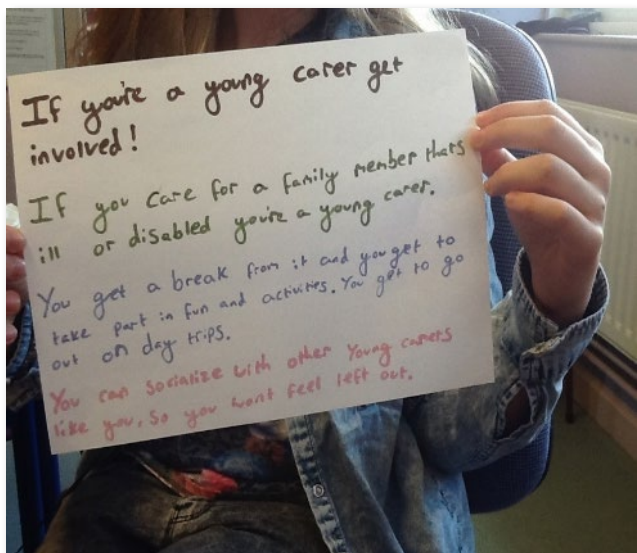 If you're a young carer get
involved!
If you care for a family member thats
ill or disabled you're a young carer.
You get a break from it and you get to
take part in fun and activities. You get to go
out on day trips.
You can socialize with other Young carers
like you, so you wont feel left out.